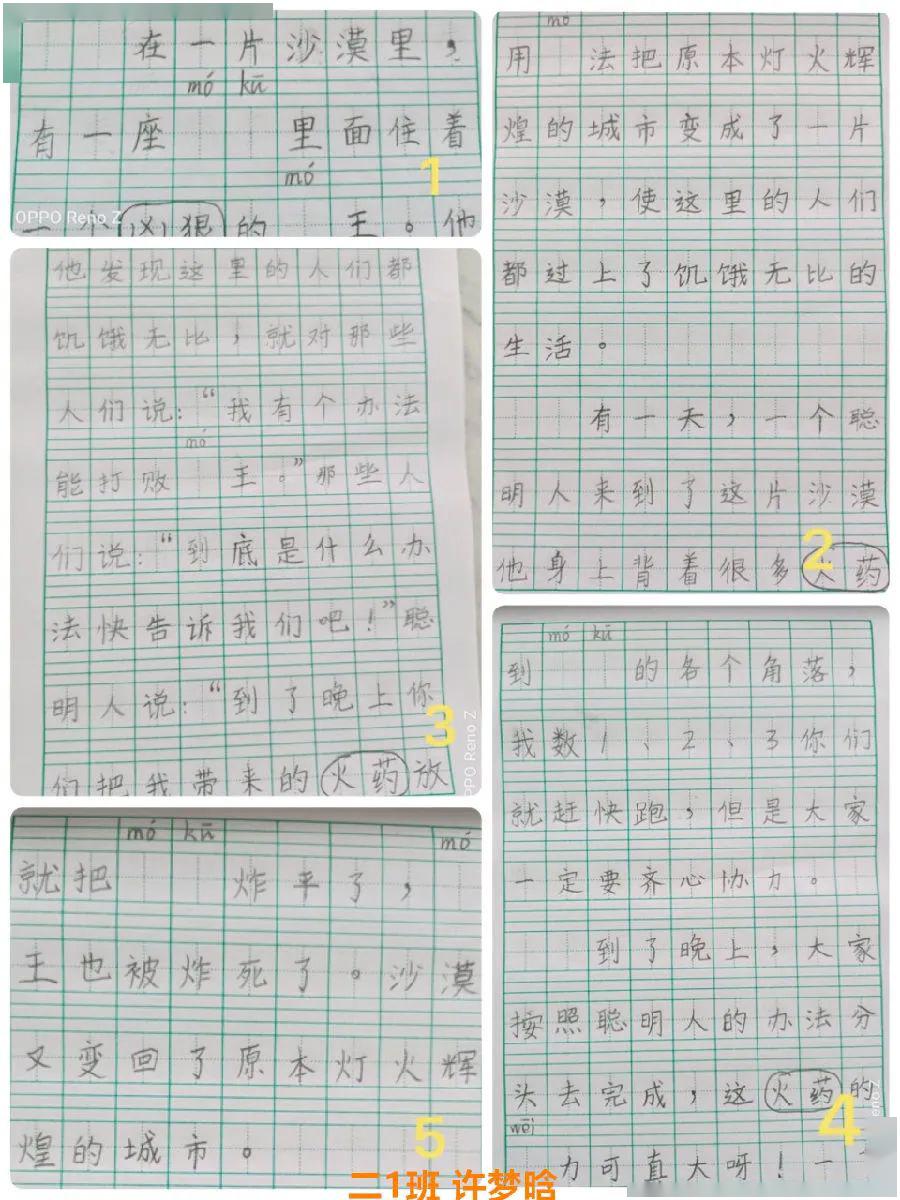 在一片沙漠里，
mó kū
有一座 里面住着
mó
一个凶狠的 王。他
1
OPPO Reno Z
mó
用 法把原本灯火辉
煌的城市变成了一片
沙漠，使这里的人们
都过上了饥饿无比的
生活。
有一天，一个聪
明人来到了这片沙漠
他身上背着很多火药
2
他发现这里的人们都
饥饿无比，就对那些
人们说：“我有个办法
mó
能打败 王。”那些人
们说：“到底是什么办
法快告诉我们吧！”聪
明人说：“到了晚上你
们把我带来的火药放
3
OPPO Reno Z
mó kū
到 的各个角落，
我数1、2、3你们
就赶快跑，但是大家
一定要齐心协力。
到了晚上，大家
按照聪明人的办法分
头去完成，这火药的
wēi
力可真大呀！一
4
Reno Z
mó kū mó
就把 炸平了，
王也被炸死了。沙漠
又变回了原本灯火辉
煌的城市。
5
二1班 许梦晗